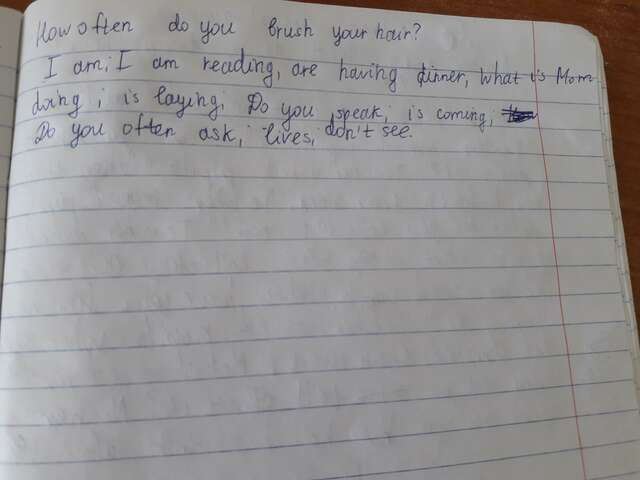 How often do you brush your hair?
I am; I am reading, are having dinner, What is Mom
doing; is laying; Do you speak; is coming;
Do you often ask; lives, don't see.